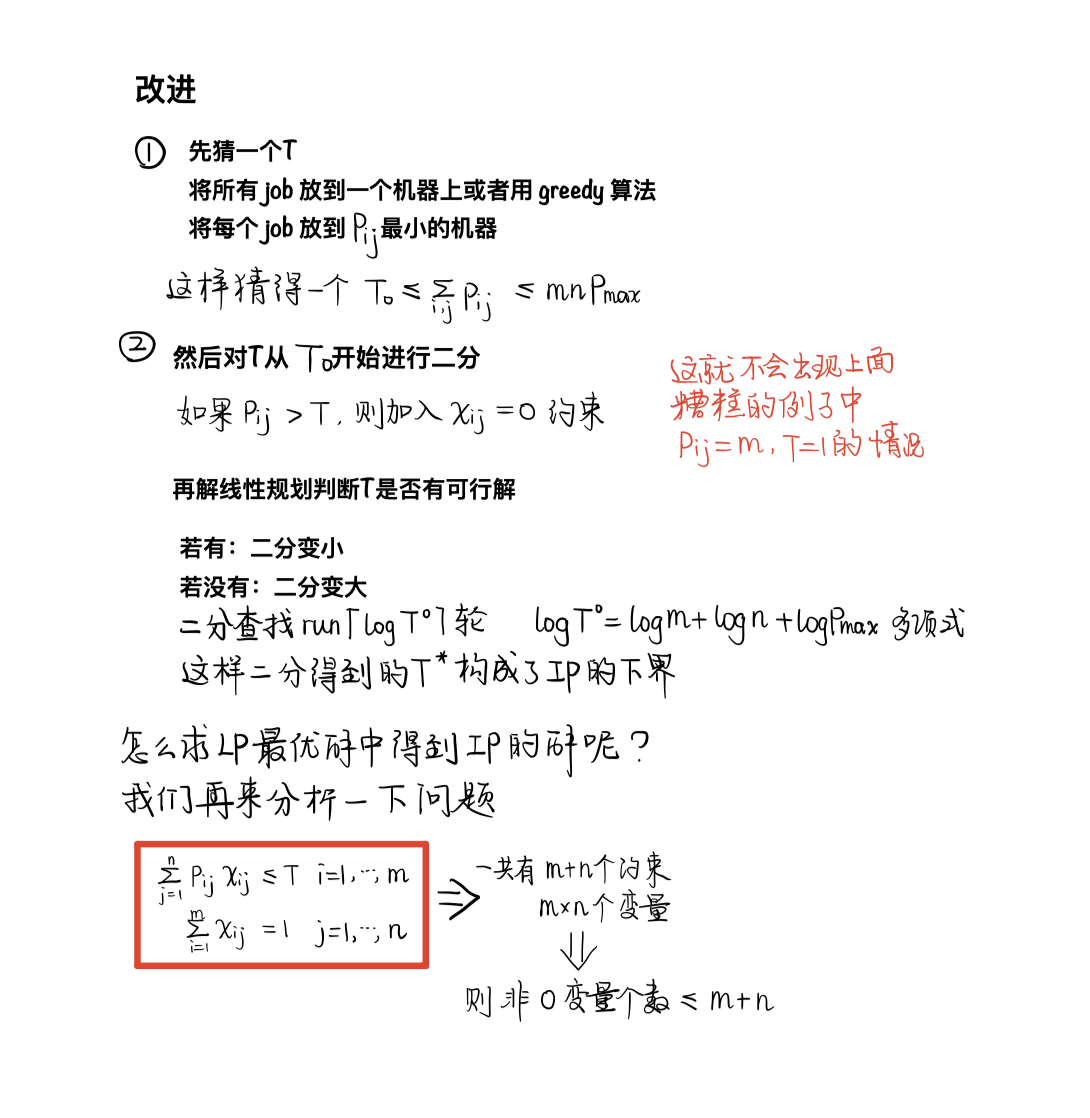 改进
① 先猜一个T
将所有 job 放到一个机器上或者用 greedy 算法
将每个 job 放到 Pij 最小的机器
这样猜得一个 T₀ ≤ ∑i,j Pij ≤ mnPmax
② 然后对T从 T₀开始进行二分
如果 Pij > T, 则加入 xij = 0 约束
这就不会出现上面
糟糕的例子中
Pij = m, T=1 的情况
再解线性规划判断T是否有可行解
若有：二分变小
若没有：二分变大
二分查找 run⌈log T⁰⌉轮 log T⁰ = logm + logn + logPmax 多项式
这样二分得到的T*构成了IP的下界
怎么求LP最优解中得到IP的解呢？
我们再来分析一下问题
∑_{j=1}^{n} Pij xij ≤ T i=1,⋯,m
∑_{i=1}^{m} xij = 1 j=1,⋯,n
⇒ 一共有 m+n个约束
m×n 个变量
⇓
则非0变量个数 ≤ m+n